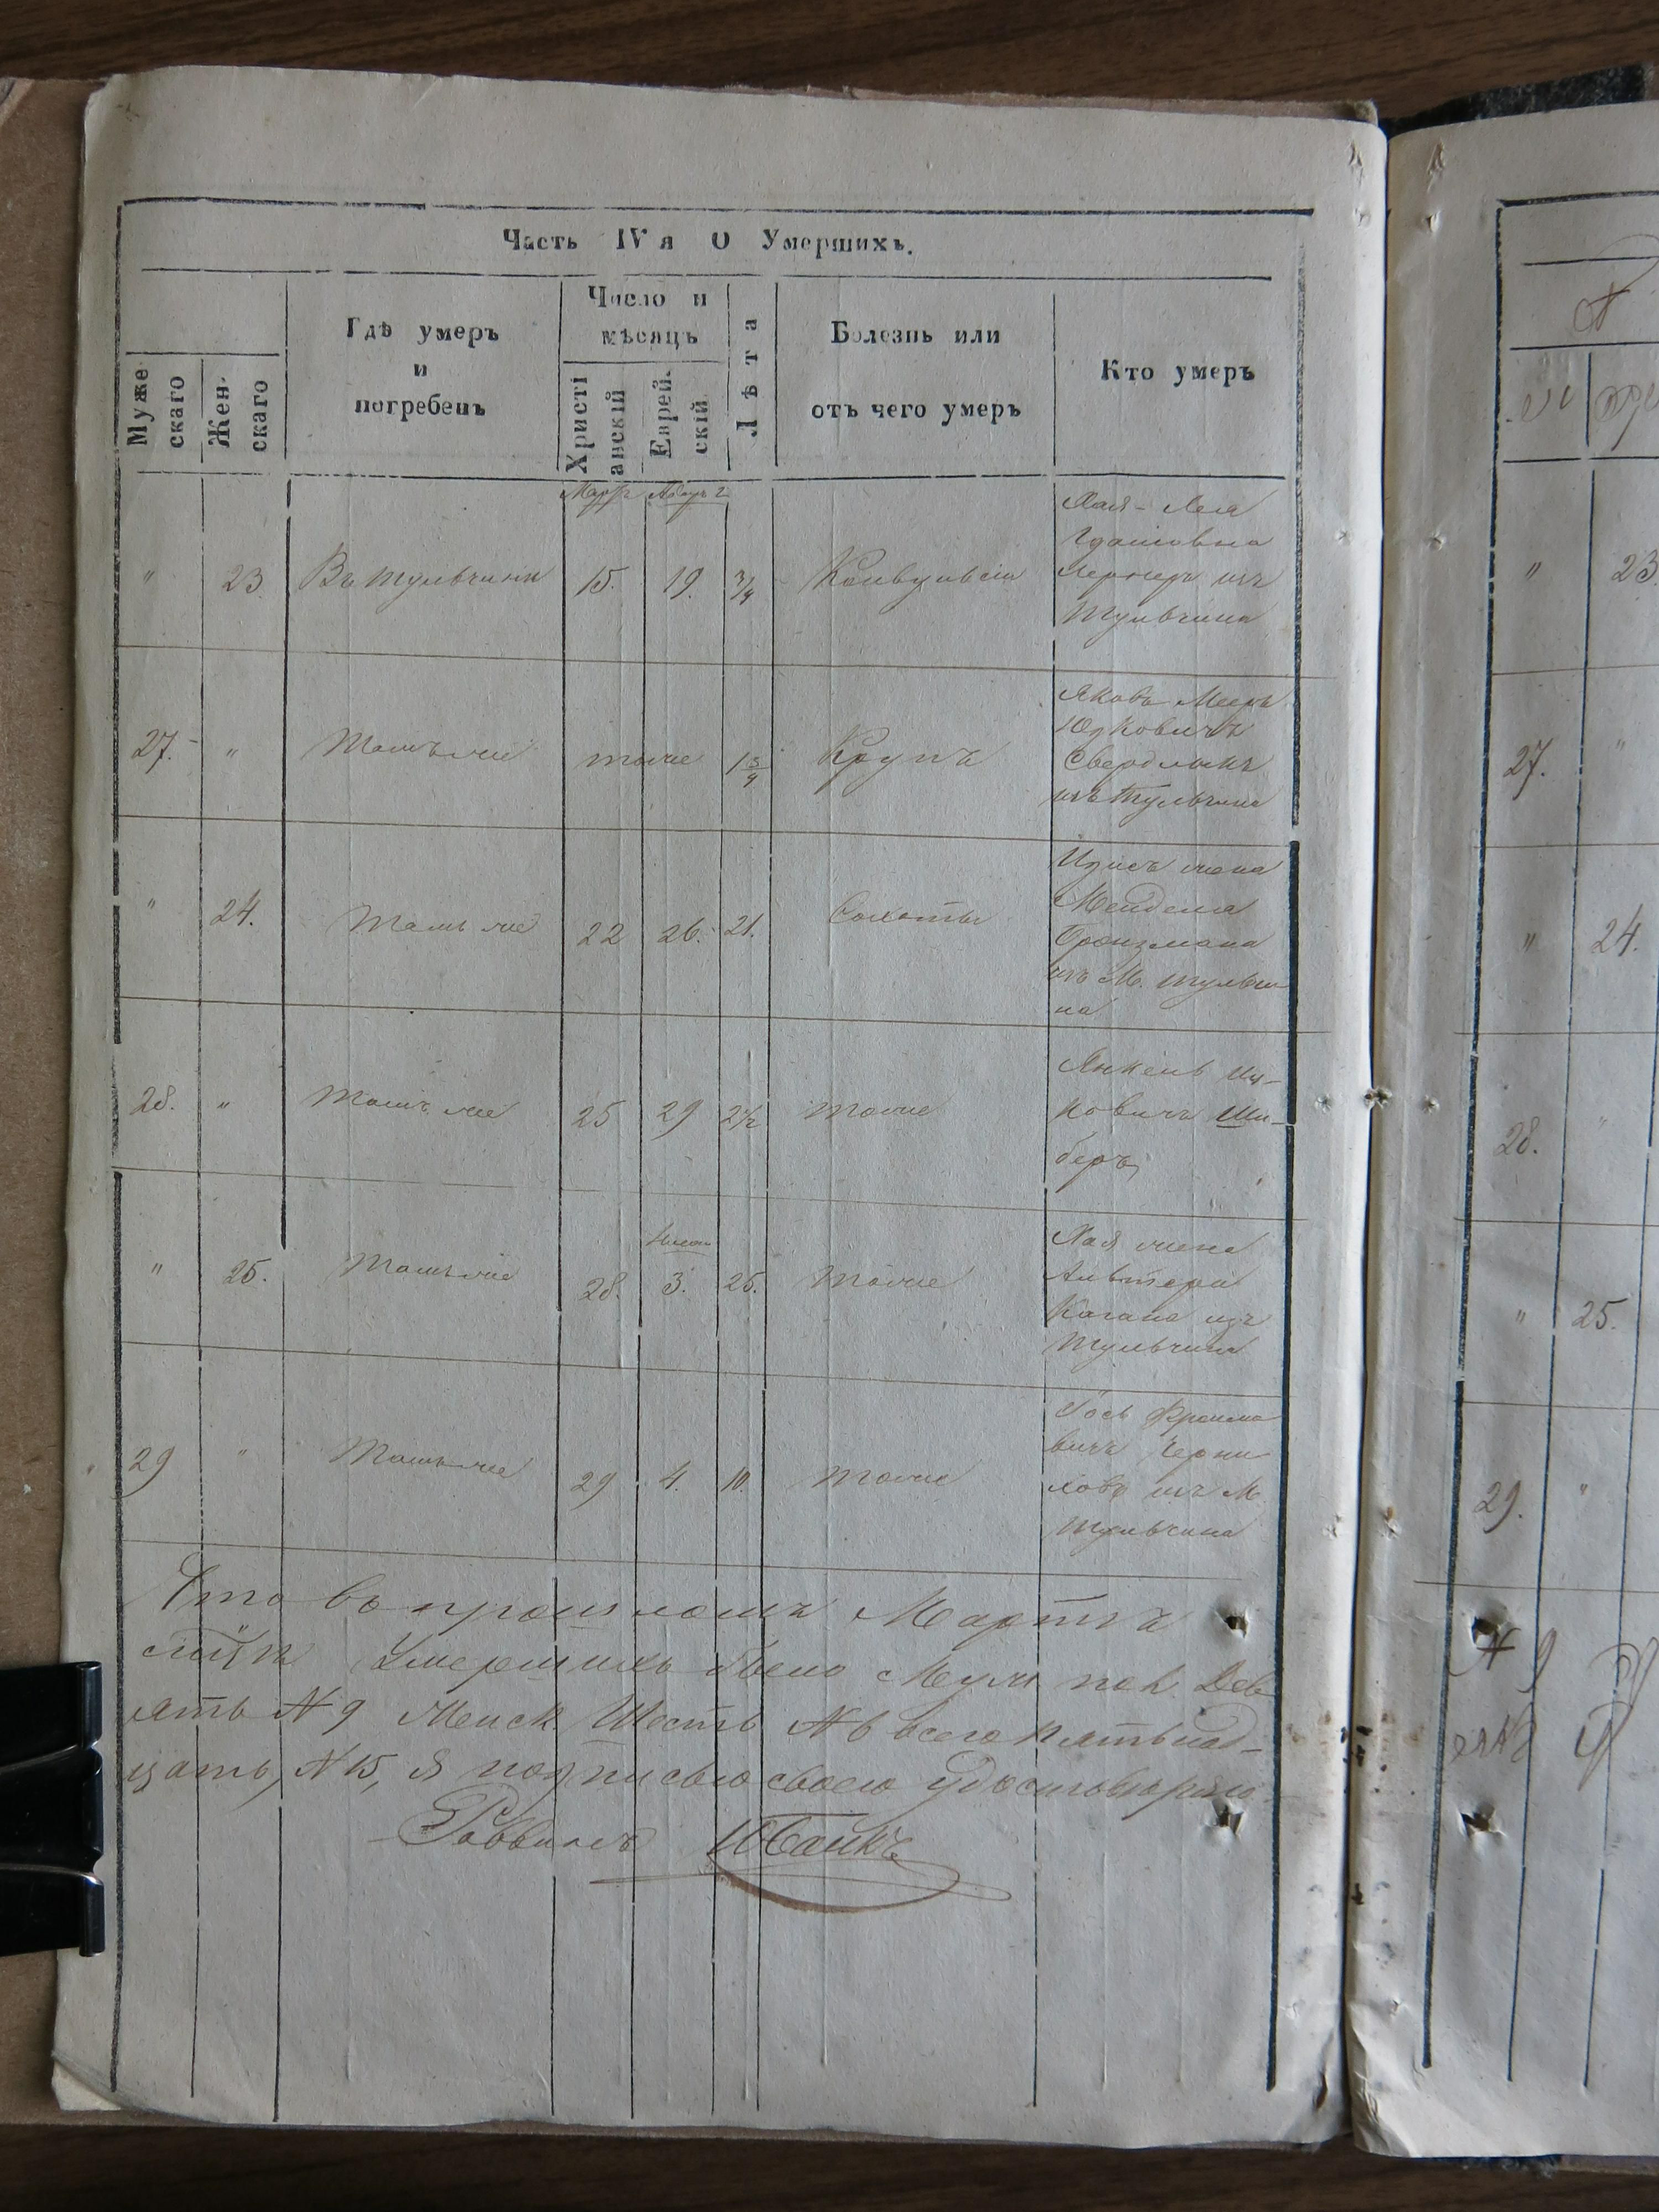 Часть IV я О Умершихъ.
Муже
скаго
Жен-
скаго
Гдѣ умеръ
и
погребенъ
Число и
мѣсяцъ
Христі
анскій
Еврей-
скій
Лѣта
Болезнь или
отъ чего умеръ
Кто умеръ
Мартъ Адаръ 2
" 23. Въ Тульчинѣ 15. 19. 3/4 Конвульсіи
Хая-Лея
Лернеръ изъ
Тульчина
27. " Тамъ же тоже 1 3/4 Крупъ
Яковъ Мееръ
Юзковичъ
Свердликъ
изъ Тульчина
" 24. Тамъ же 22 26. 21. Сухоты
жена
Менделя
Сройзмана
изъ М. Тульчи
на
28. " Тамъ же 25 29 2 1/2 тоже
Янкель Иц-
ковичъ Ши-
беръ
Нисанъ
" 25. Тамъ же 28. 3. 25. тоже
Хая жена
Альтера
Кагана изъ
Тульчина
29 " Тамъ же 29 4. 10. тоже
Іось Фроимо
вичъ Черни
ховъ изъ М.
Тульчина
Что въ прошломъ Мартѣ
Умершихъ было Муж. пол. Дев
ять N 9 Женск. Шесть N 6 всего пятьнад-
цать, N 15, я подписью своею удостовѣряю.
Раввинъ Ю Баикъ
N
" 23.
27. "
" 24.
28. "
" 25.
29. "
N 9